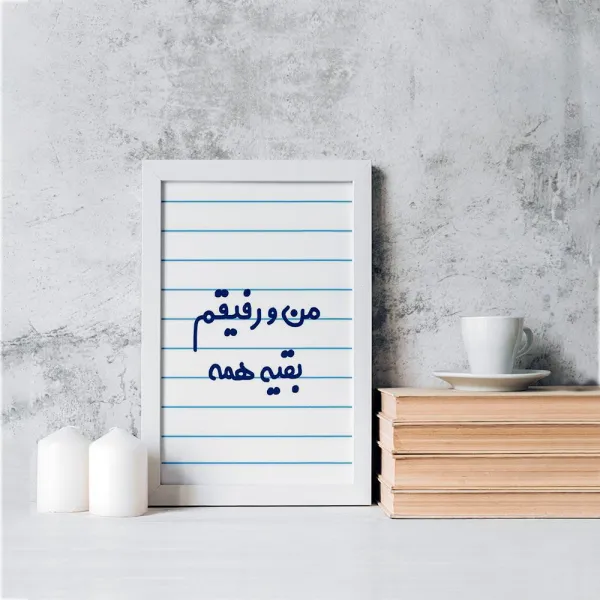 من و رفیقم
بقیه همه